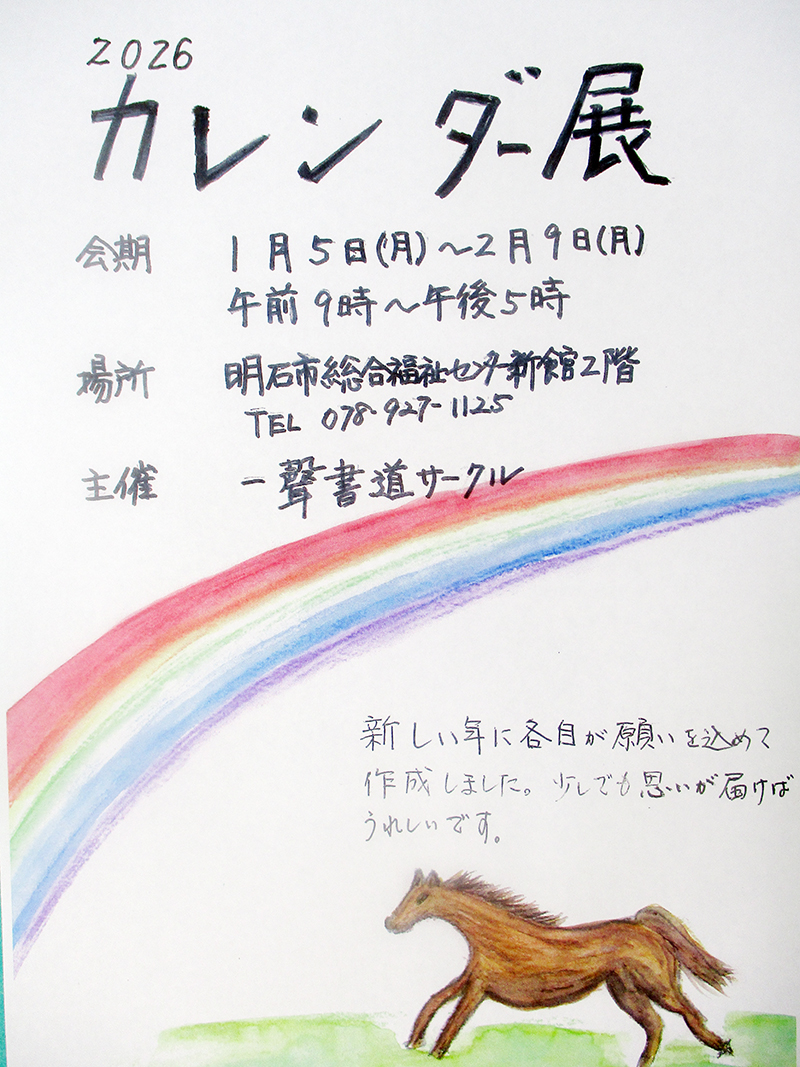 2026
カレンダー展
会期 1月5日(月)～2月9日(月)
午前9時～午後5時
場所 明石市総合福祉センター新館2階
TEL 078-927-1125
主催 一聲書道サークル
新しい年に各自が願いを込めて
作成しました。少しでも思いが届けば
うれしいです。